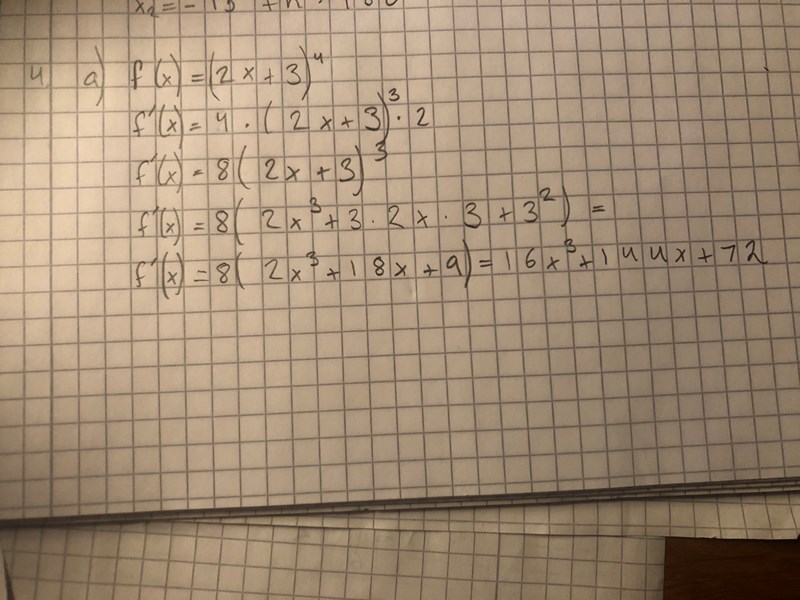 4 a) f(x) = (2x+3)⁴
f'(x) = 4 · (2x+3)³ · 2
f'(x) = 8(2x+3)³
f'(x) = 8(2x³+3·2x·3+3²) =
f'(x) = 8(2x³+18x+9) = 16x³+144x+72